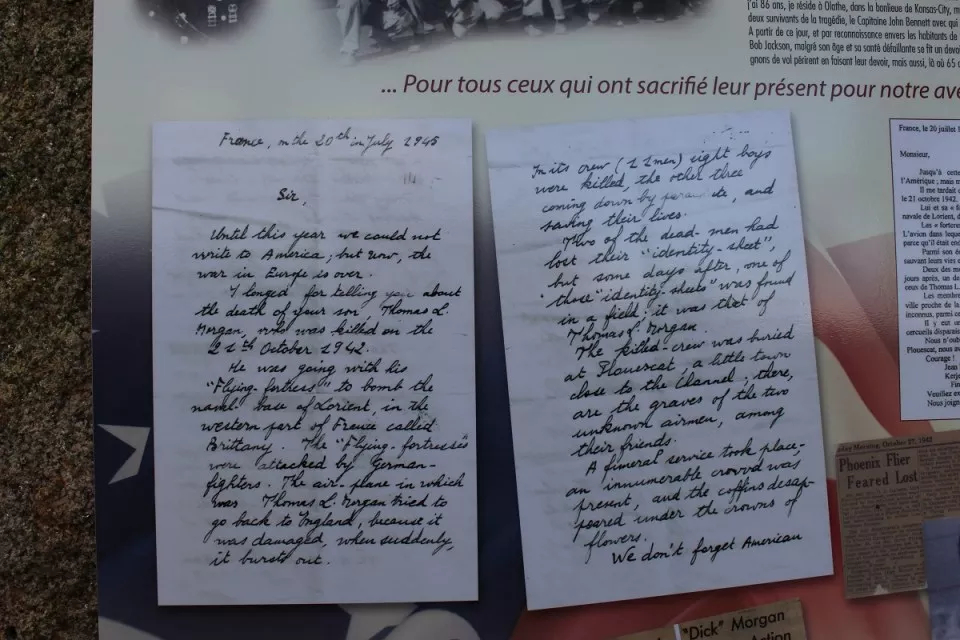 j'ai 86 ans, je réside à Olathe, dans la banlieue de Kansas-City,
deux survivants de la tragédie, le Capitaine John Bennett avec qui
A partir de ce jour, et par reconnaissance envers les habitants de
Bob Jackson, malgré son âge et sa santé défaillante se fit un devoi
gnons de vol périrent en faisant leur devoir, mais aussi, là où 65
... Pour tous ceux qui ont sacrifié leur présent pour notre ave
France, on the 20th in July 1945
Sir,
Until this year we could not
write to America; but now, the
war in Europe is over.
I longed for telling you about
the death of your son, Thomas L.
Morgan, who was killed on the
21th October 1942.
He was going with his
"Flying-fortress" to bomb the
naval-base of Lorient, in the
western part of France called
Brittany. The "Flying-fortresses"
were attacked by German-
fighters. The air-plane in which
was Thomas L. Morgan tried to
go back to England, because it
was damaged, when suddenly,
it bursts out.
In its crew (11 men) eight boys
were killed, the other three
coming down by, and
saving their lives.
Two of the dead-men had
lost their "identity-sheet",
but some days after, one of
those "identity-sheets" was found
in a field; it was that of
Thomas L. Morgan.
The killed-crew was buried
at Plouescat, a little town
close to the Channel; there,
are the graves of the two
unknown airmen, among
their friends.
A funeral service took place;
an innumerable crowd was
present, and the coffins desap-
peared under the crowns of
flowers.
We don't forget American
France, le 20 juillet
Monsieur,
Jusqu'à cette
l'Amérique; mais
Il me tardait
le 21 octobre 1942.
Lui et sa « f
navale de Lorient, d
Les « forteres
L'avion dans leque
parce qu'il était en
Parmi son é
sauvant leurs vies
Deux des m
jours après, un d
ceux de Thomas L.
Les membre
ville proche de la
inconnus, parmi
Il y eut un
cercueils disparais
Nous n'oub
Plouescat, nous av
Courage !
Jean
Kerj
Fin
Veuillez ex
Nous joign
Morning, October 27, 1942
Phoenix Flier
Feared Lost
"Dick" Morgan
Action